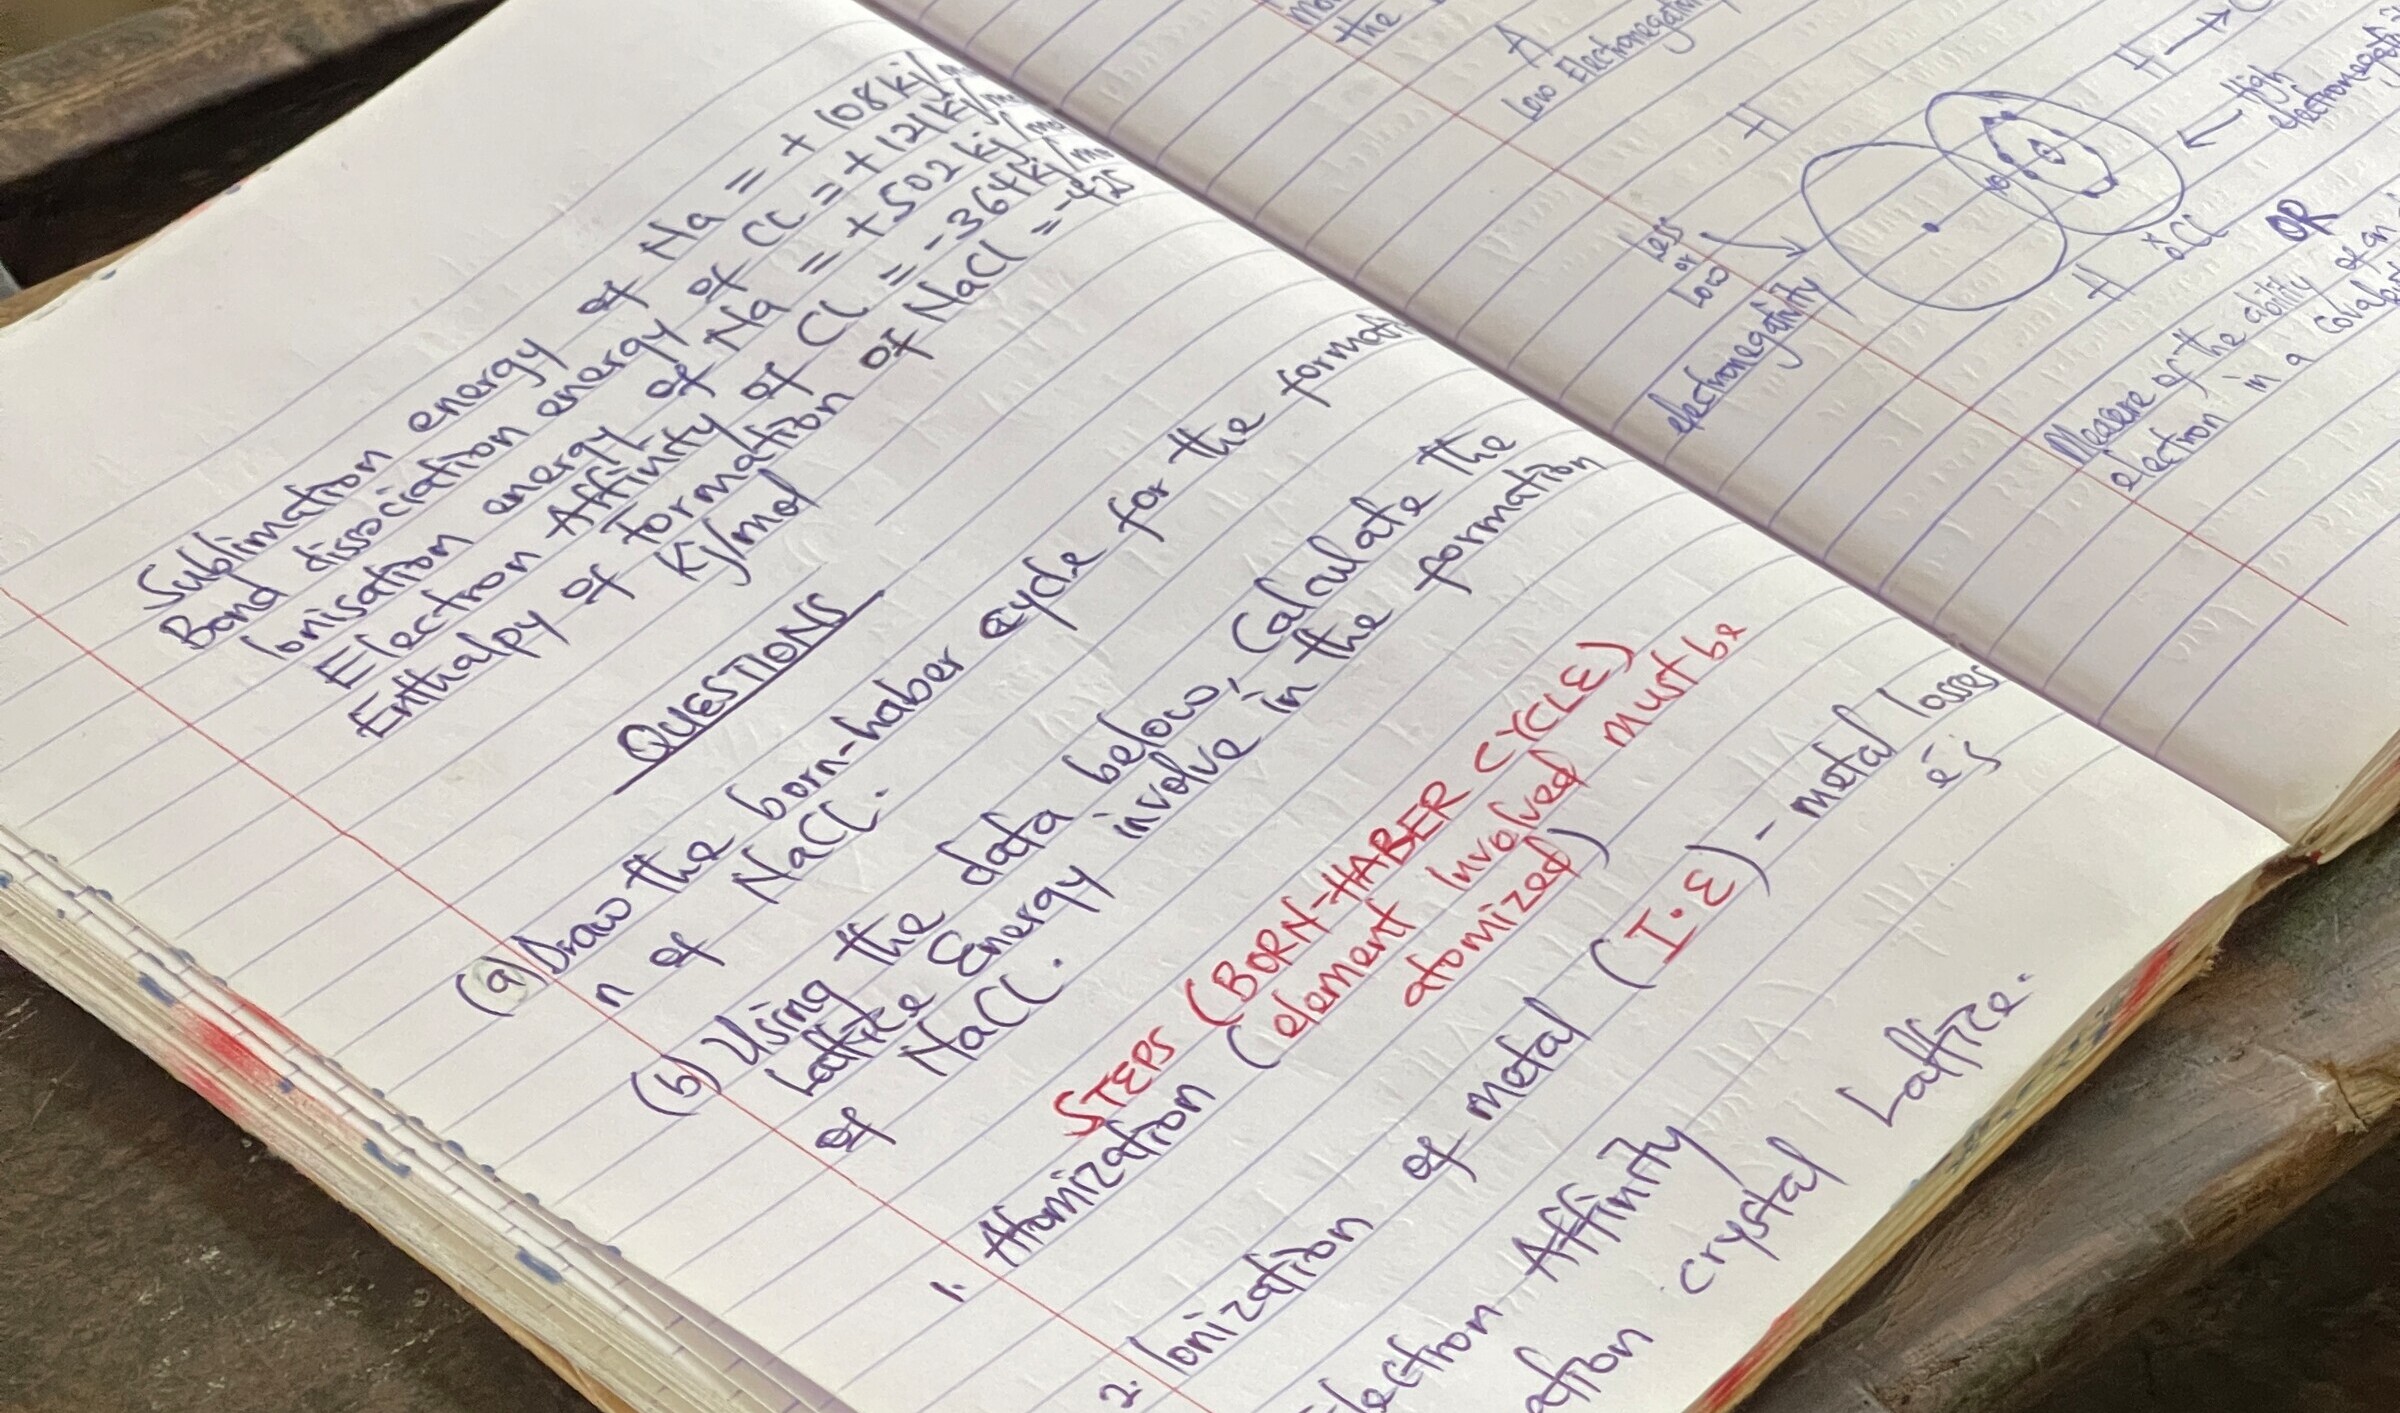 Sublimation energy of Na = + 108 kj/
Bond dissociation energy of CL = + 121kj/mo
Ionisation energy of Na = + 502 kj/mo
Electron Affinity of CL = - 364 kj/mo
Enthalpy of formation of NaCl = -425
Kj/mol
QUESTIONS
(a) Draw the born-haber cycle for the formatio
n of NaCL.
(b) Using the data below, Calculate the
Lattice Energy involve in the formation
of NaCL.
STEPS (BORN-HABER CYCLE)
1. Atomization (element involved must be
atomized)
2. Ionization of metal (I.E) - metal losses
és
Electron Affinity
ation crystal Lattice.
the
A
Low Electronegativity
H H →
High
electronegati
Less
or
Low
electronegativity
H CL
OR
Measere of the ability of an
electron in a covalent